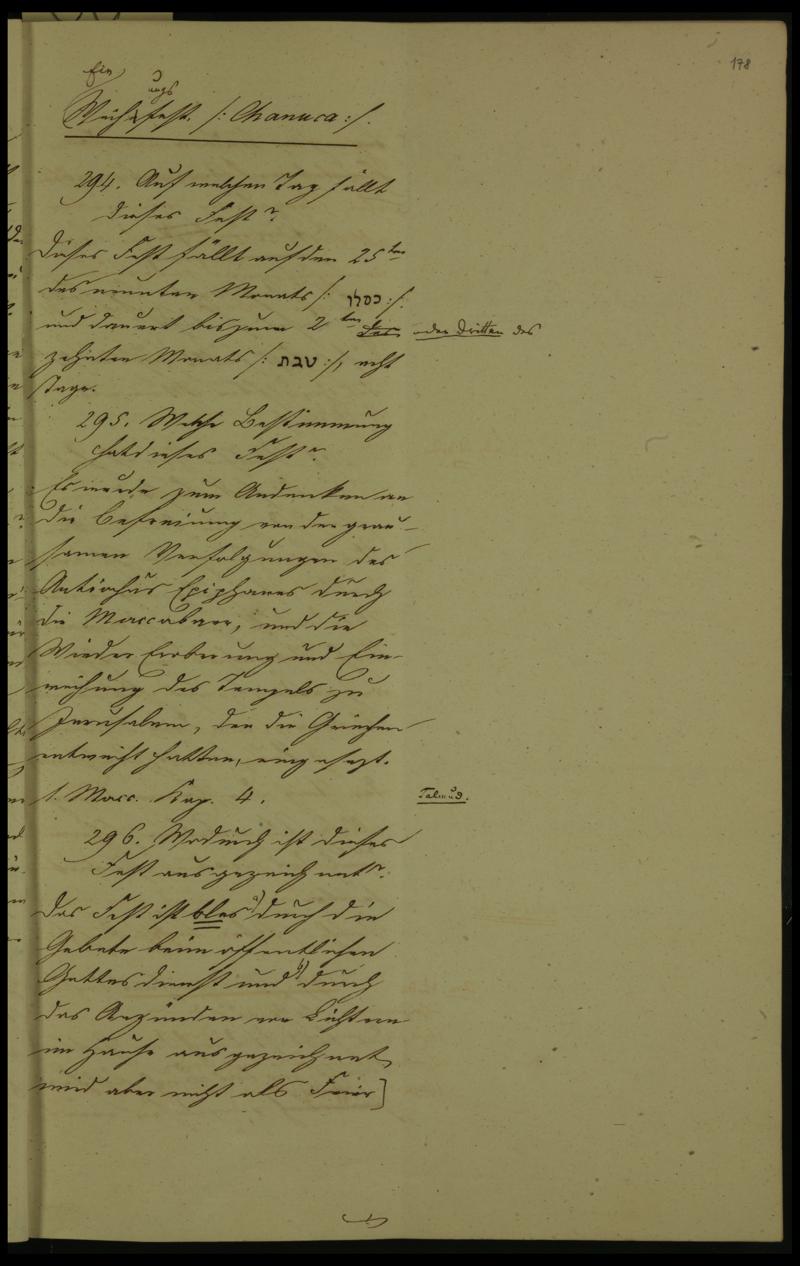 178
Ein ungs
Weihfest. /: Chanuca :/.
294. Auf welchen Tag fällt
dieses Fest?
Dieses Fest fällt auf den 25ten
des neunten Monats /: כסלו :/.
und dauert bis zum 2ten oder Dritten des
zehnten Monats /: טבת :/, acht
Tage.
295. Welche Bestimmung
hat dieses Fest?
Es wurde zum Andenken an
die Befreiung von den grau-
samen Verfolgungen des
Antiochus Epiphanes durch
die Maccabäer, und die
Wieder Eroberung und Ein-
weihung des Tempels zu
Jerusalem, den die Griechen
entweiht hatten, eingesezt.
1. Macc. Kap. 4.
Talmud.
296. Wodurch ist dieses
Fest ausgezeichnet?
Das Fest ist blos a) durch die
Gebete beim öffentlichen
Gottesdienst und b) durch
das Anzünden von Lichtern
im Hause ausgezeichnet,
wird aber nicht als Feier]